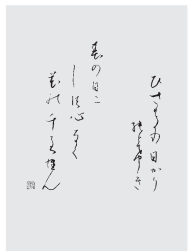 ひさかたの日かり
のとけき
春の日二
しつ心なく
花の千るらん